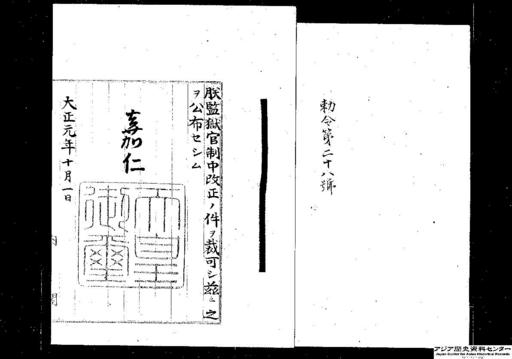 勅令第二十八號
朕監獄官制中改正ノ件ヲ裁可シ茲ニ之
ヲ公布セシム
嘉仁
天皇御璽
大正元年十月一日
内閣
アジア歴史資料センター
Japan Center for Asian Historical Records